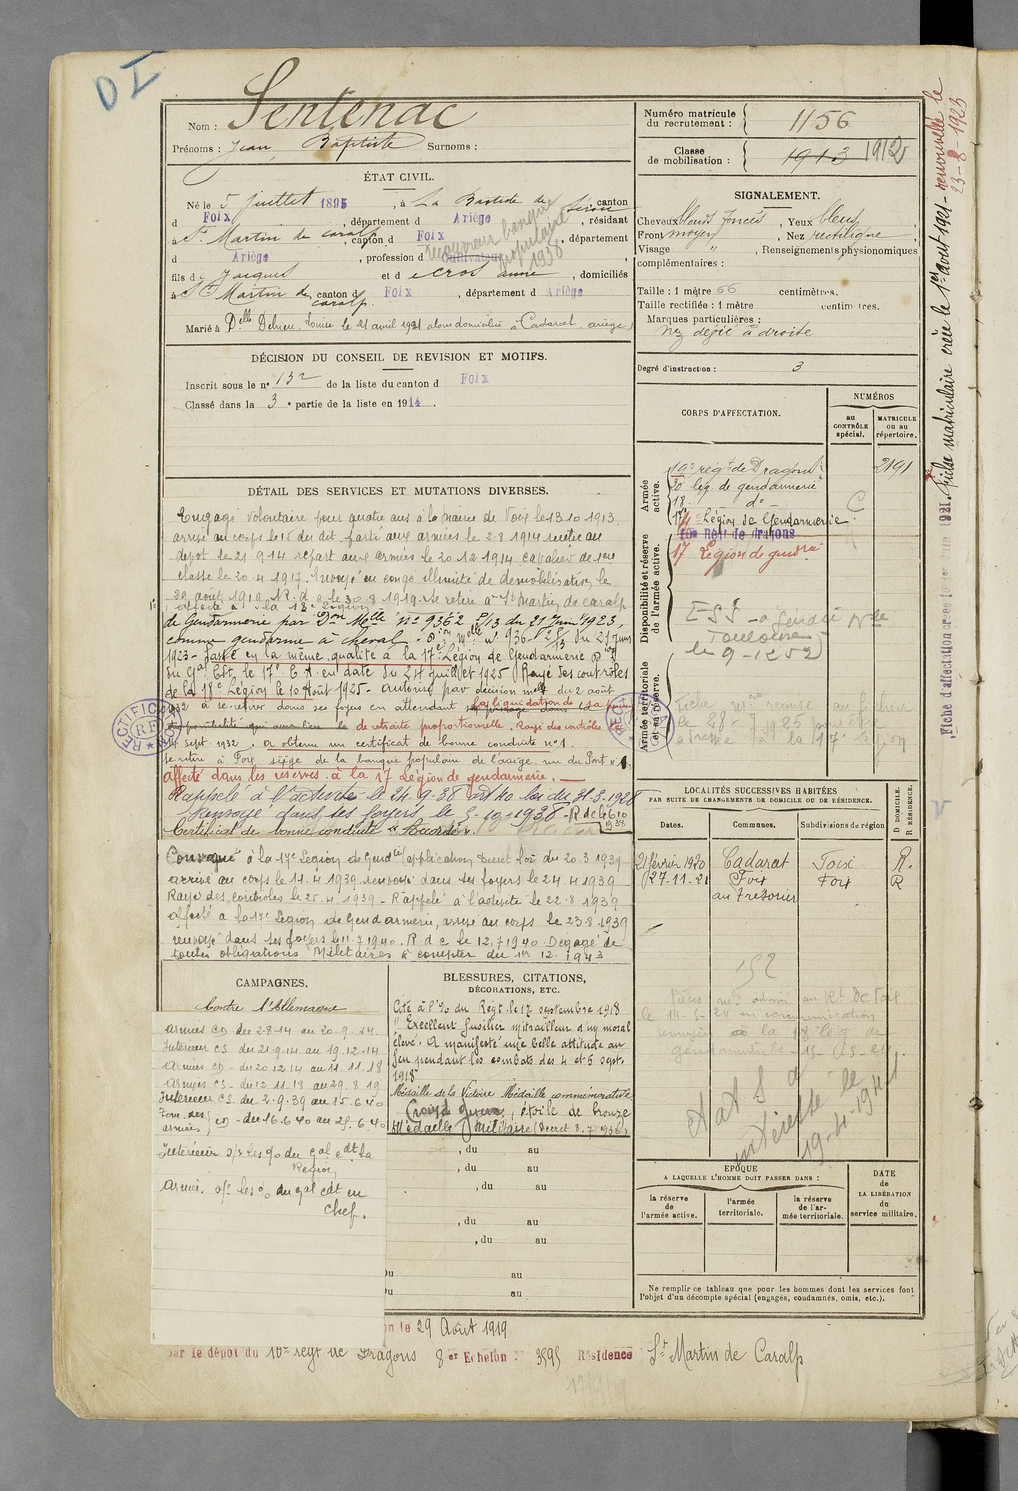 D I
Nom : Sentenac
Prénoms : Jean Baptiste Surnoms :
ÉTAT CIVIL.
Né le 5 juillet 1895, à La Bastide de Sérou, canton
d Foix, département d Ariège, résidant
à St Martin de Caralp, canton d Foix, département
d Ariège, profession d Cultivateur
receveur banque populaire 1938
fils d e Jacques et d e Cros anne, domiciliés
à St Martin de Caralp, canton d Foix, département d Ariège
Marié à Delle Delrieu Louise le 21 avril 1921 alors domiciliée à Cadarcet, ariège
DÉCISION DU CONSEIL DE REVISION ET MOTIFS.
Inscrit sous le n° 132 de la liste du canton d Foix
Classé dans la 3e partie de la liste en 1914.
DÉTAIL DES SERVICES ET MUTATIONS DIVERSES.
Engagé volontaire pour quatre ans à la mairie de Foix le 13.10.1913.
arrivé au corps le 15 du dit, parti aux armées le 2.8.1914 rentré au
dépôt le 21.9.14 repart aux armées le 20.12.1914 cavalier de 1ère
classe le 20.4.1917. Envoyé en congé illimité de démobilisation le
29 août 1919. R.d.c. le 30.8.1919. Se retire à St Martin de Caralp
affecté à la 18e Légion
de Gendarmerie par Don Melle n° 9362 2/13 du 21 juin 1923,
comme gendarme à cheval. Don Melle n° 936 du 21 juin
1923 - Passé en la même qualité à la 17e Légion de Gendarmerie Don
du Gal Cdt. le 17e C.A. en date du 24 juillet 1925 Rayé des contrôles
de la 18e Légion le 10 Août 1925 - autorisé par décision melle du 2 août
1932 à se retirer dans ses foyers en attendant la liquidation de sa pension
disponibilité qui aura lieu le de retraite proportionnelle. Rayé des contrôles le
14 sept. 1932, a obtenu un certificat de bonne conduite n°1.
se retire à Foix, siège de la banque populaire de l'ariège, rue du Pont n° 1
affecté dans les réserves à la 17 Légion de gendarmerie.
Rappelé à l'activité le 24.9.38 art 40 loi du 31.3.1928
Renvoyé dans ses foyers le 5-10-1938 - R dc le 6 10 1938
Certificat de bonne conduite "Accordé".
Convoqué à la 17e Légion de Gendie (application Décret loi du 20.3.1939
arrivé au corps le 11.4.1939 renvoyé dans ses foyers le 24.4.1939
Rayé des contrôles le 25.4.1939 - Rappelé à l'activité le 22.8.1939
affecté à la 17e Légion de Gendarmerie, arrivé au corps le 23.8.1939
renvoyé dans ses foyers le 11.7.1940. R.d.c le 12.7.1940. Dégagé de
toutes obligations Militaires à compter du 1er 12.1943
RECTIFICATION
RF
CAMPAGNES.
Contre l'Allemagne
Armées CD du 2-8-14 au 20.9.14.
Intérieur CS du 21.9.14 au 19.12.14
Armées CD du 20.12.14 au 11.11.18
Armées CS du 12.11.18 au 29.8.19
Intérieur CS du 2.9.39 au 15.6.40
Zone des armées CD du 16.6.40 au 25.6.40
Intérieur s/s les °/° du gal cdt la
Région
Armées, s/s les °/° du gal cdt en
Chef.
BLESSURES, CITATIONS,
DÉCORATIONS, ETC.
Cité à l'°/° du Régt le 17 septembre 1918
"Excellent fusilier mitrailleur d'un moral
élevé. A manifesté une belle attitude au
feu pendant les combats des 4 et 5 sept.
1918
Médaille de la Victoire Médaille commémorative
Croix de guerre, étoile de bronze
Médaille Militaire (Décret 8.7.1932)
, du au
, du au
, du au
, du au
, du au
Du au
Du au
on le 29 Août 1919
par le dépôt du 10me régt de Dragons 8er Echelon : 3595 Résidence St Martin de Caralp
Numéro matricule
du recrutement : 1156
Classe
de mobilisation : 1913 1912
SIGNALEMENT.
Cheveux blonds foncés, Yeux bleus,
Front moyen, Nez rectiligne,
Visage ", Renseignements physionomiques
complémentaires :
Taille : 1 mètre 66 centimètres.
Taille rectifiée : 1 mètre centimètres.
Marques particulières :
Nez dévié à droite
Degré d'instruction : 3
CORPS D'AFFECTATION.
NUMÉROS
au
CONTRÔLE
spécial.
MATRICULE
ou au
répertoire.
Armée
active.
19e régt de Dragons 2191
20 lég. de gendarmerie
18 do
17e Légion de Gendarmerie.
C
Disponibilité et réserve
de l'armée active.
10me Régt de dragons
17 Légion de gendrie
Toulouse
le 9-
Armée territoriale
et sa réserve.
Fiche mle remise au fichier
le 28-7-1925
à la 17e Légion
LOCALITÉS SUCCESSIVES HABITÉES
PAR SUITE DE CHANGEMENTS DE DOMICILE OU DE RÉSIDENCE.
Dates. Communes. Subdivisions de région
D DOMICILE.
R RÉSIDENCE.
21 février 1920 Cadarcet Foix R.
27-11-21 Foix Foix R
au Trésorier
152
le 14-5-24 en communication
à la 18 lég. de
gendarmerie - 15-05-24
19-11-1941
ÉPOQUE
A LAQUELLE L'HOMME DOIT PASSER DANS :
la réserve
de l'armée active.
l'armée
territoriale.
la réserve
de l'ar-
mée territoriale.
DATE
de
LA LIBÉRATION
du
service militaire.
Ne remplir ce tableau que pour les hommes dont les services font
l'objet d'un décompte spécial (engagés, condamnés, omis, etc.).
Fiche matriculaire créée le 1er août 1921 - renouvelée le
23-8-1923
Fiche d'affectation créée le 1921.